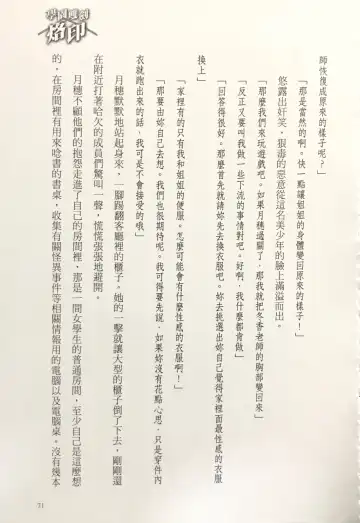 師恢復成原來的樣子呢？」
「那是當然的啊，快一點讓姐姐的身體變回原來的樣子！」
悠露出奸笑，狠毒的惡意從這名美少年的臉上滿溢而出。
「那麼我們來玩遊戲吧。如果月穗過關了，那我就把冬香老師的胸部變回來」
「反正又要叫我做一些下流的事情對吧。好啊，我什麼都肯做」
「回答得很好。那麼首先就請妳先去換衣服吧。妳去挑選出妳自己覺得家裡面最性感的衣服
換上」
「家裡有的只有我和姐姐的便服。怎麼可能會有什麼性感的衣服啊！」
「那要由妳自己去想。我們也很期待呢。我可得要先說，如果妳沒有花點心思，只是穿件內
衣就跑出來的話，我可是不會接受的哦」
月穗默默地站起身來，一腳踢翻客廳裡的櫃子。她的一擊就讓大型的櫃子倒了下去，剛剛還
在附近打著哈欠的成員們驚叫一聲，慌慌張張地避開。
月穗不顧他們的抱怨走進了自己的房間裡、那是一間女學生的普通房間，至少自己是這麼想
的，在房間裡有用來唸書的書桌，收集有關怪異事件等相關情報用的電腦以及電腦桌。沒有幾本
學園
烙印
71